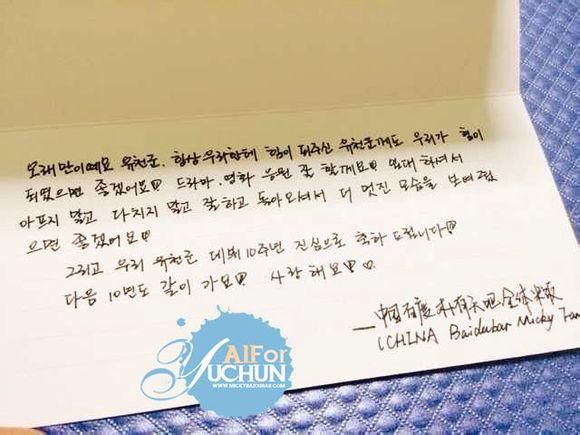 오래만이예요 유천군. 항상 우리한테 힘이 되주신 유천군께도 우리가 힘이
되였으면 좋겠어요♡ 드라마·영화 응원 꼭 할께요♡ 입대 하셔서
아프지 말고 다치지 말고 잘 하고 돌아오셔서 더 멋진 모습을 보여 줬
으면 좋겠어요♡
그리고 우리 유천군 데뷔 10주년 진심으로 축하 드립니다♡
다음 10년도 같이 가요♡ 사랑해요♡ ♡.
—中国百度朴有天吧全体米粒
(CHINA Baidubar Micky
AlFor
YUCHUN
WWW.MICKYBAIDUBAR.COM